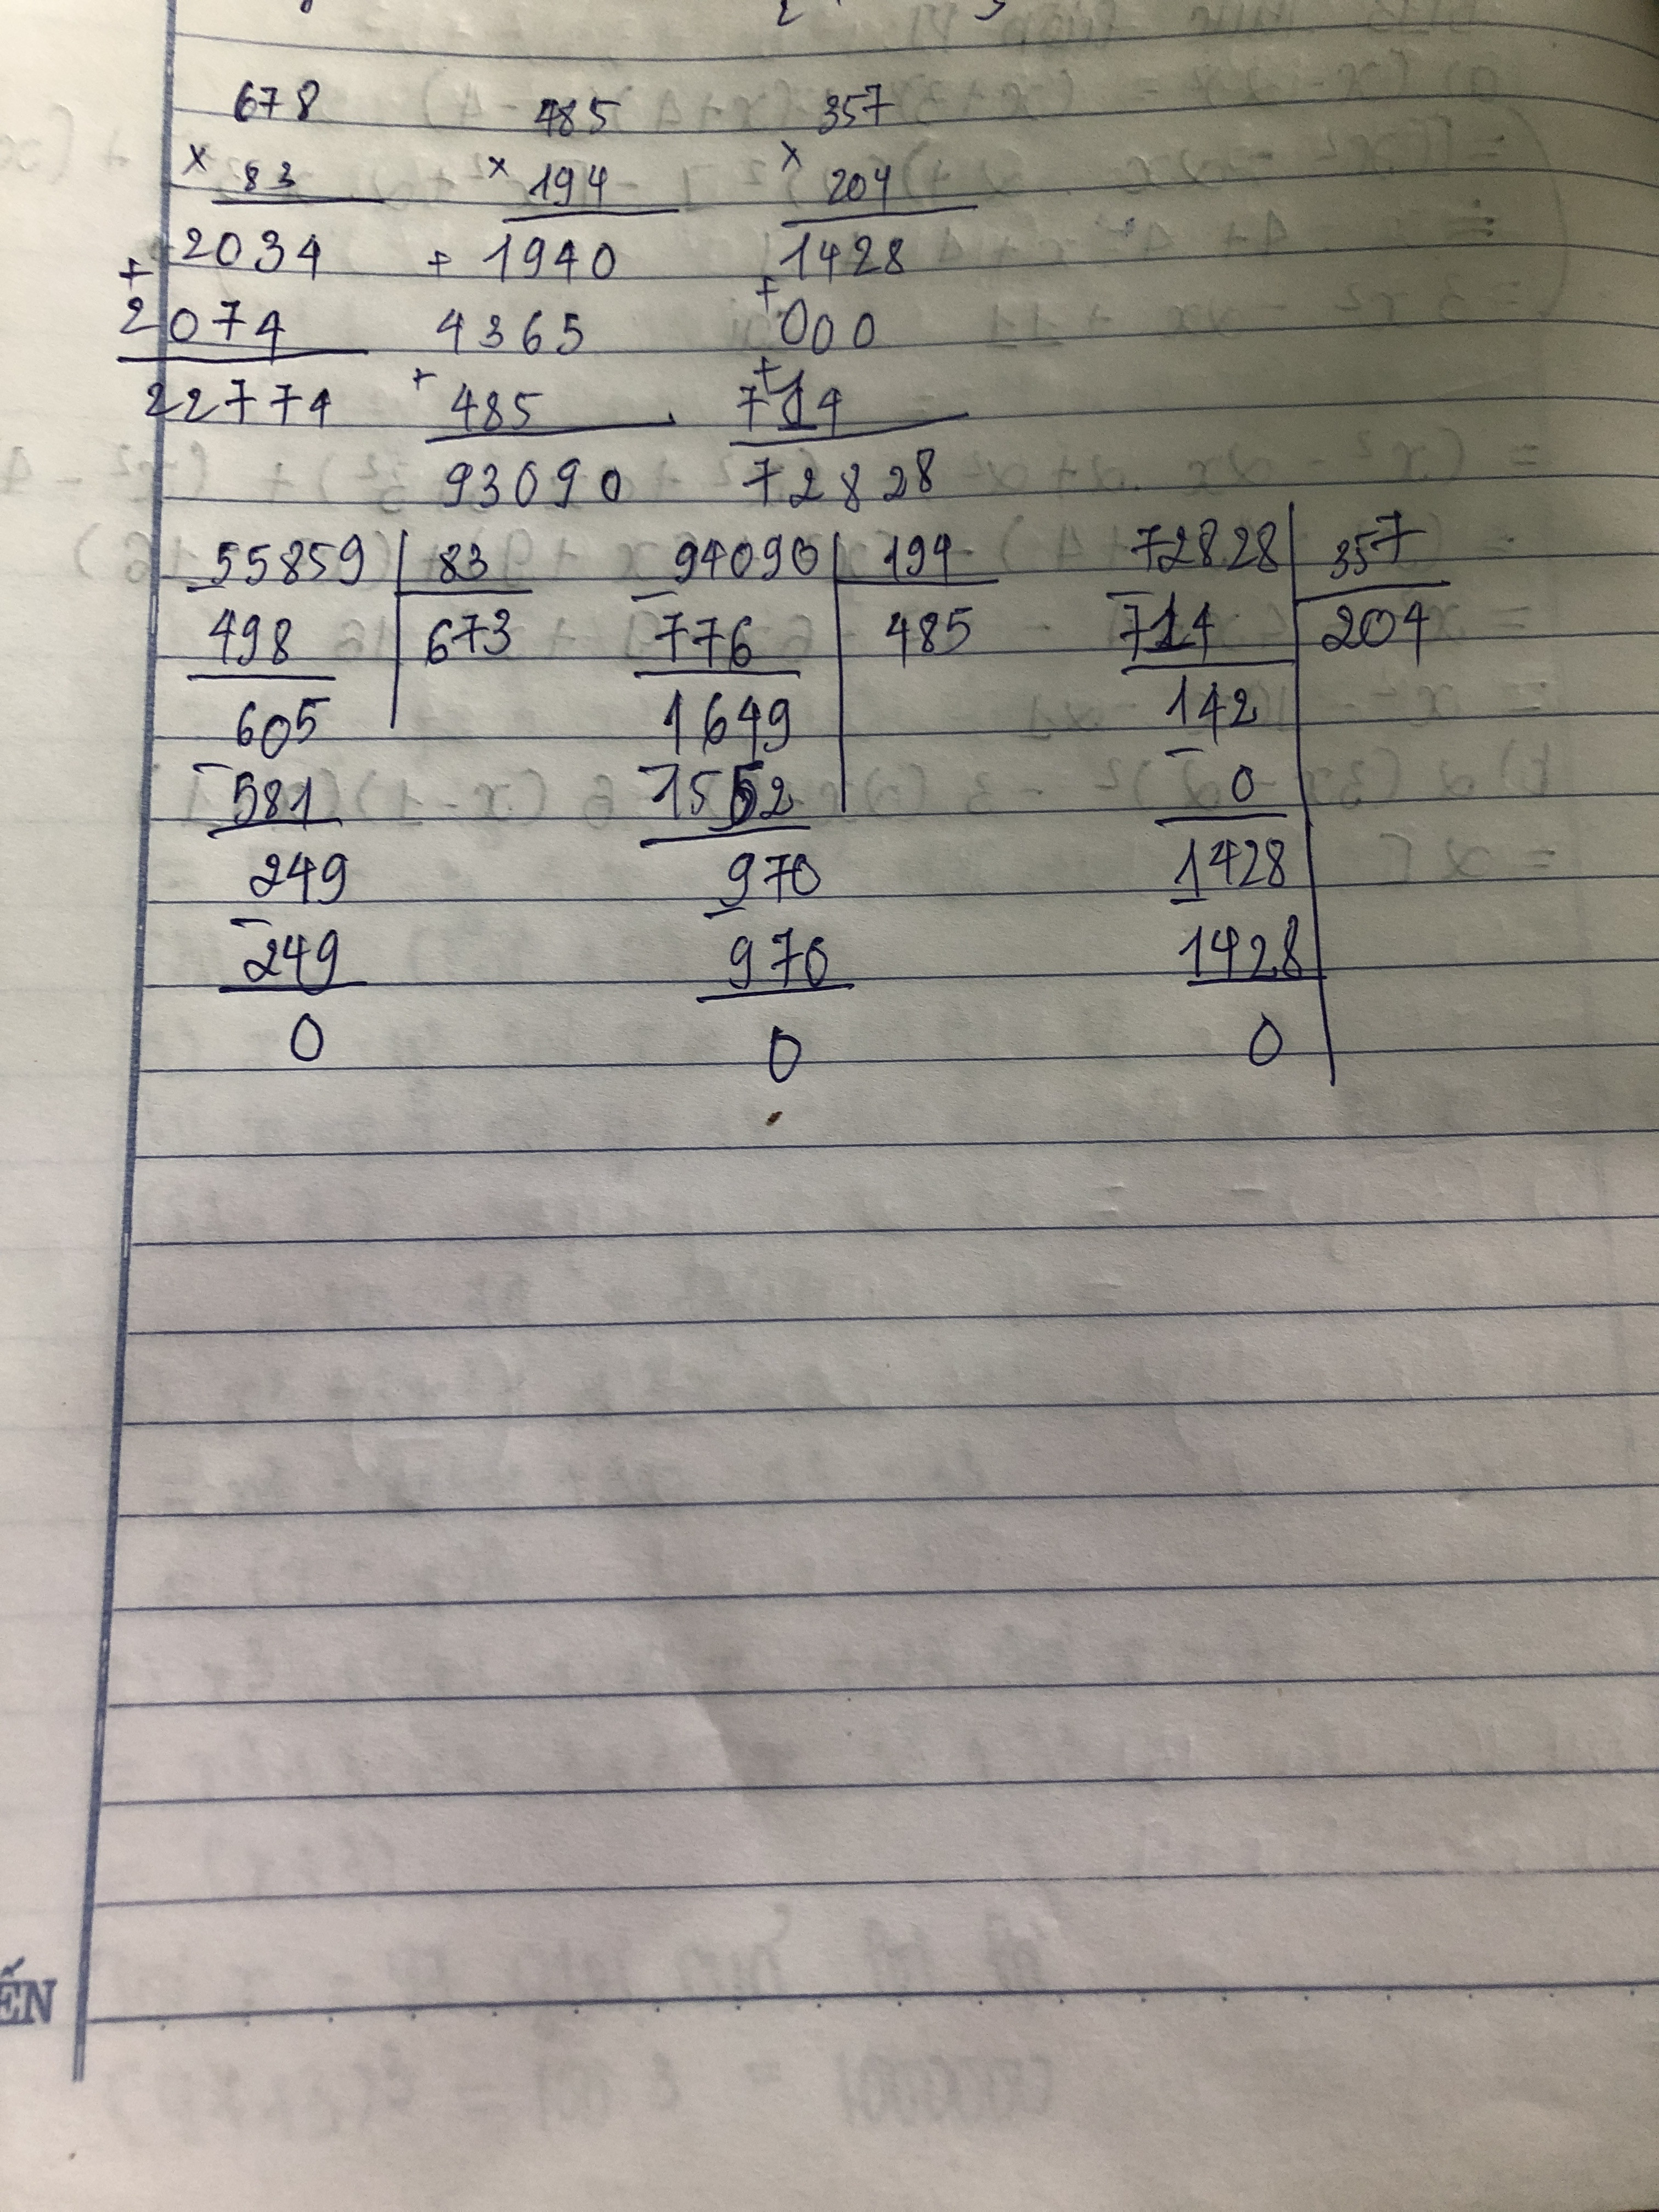 678 485 357
× 83 × 194 × 204
2034 + 1940 1428
+ 2074 4365 + 000
22774 + 485 + 714
93090 72828
55859 83 94090 194 72828 357
498 673 776 485 714 204
605 1649 142
581 1552 0
249 970 1428
249 970 1428
0 0 0
ẾN